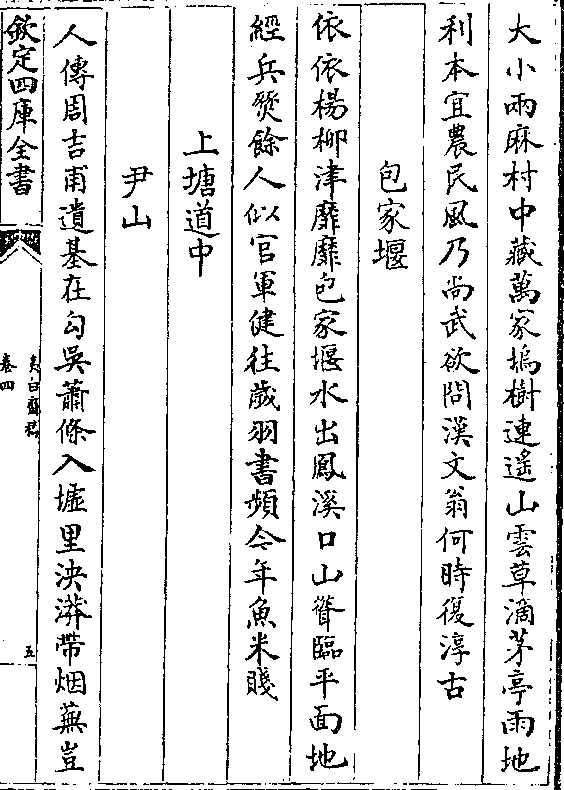 大小兩麻村中藏萬家塢樹連遙山雲草滴茅亭雨地
利本宜農民風乃尚武欲問漢文翁何時復淳古
包家堰
依依楊柳津靡靡包家堰水出鳳溪口山聳臨平面地
經兵燹餘人似官軍健往歲羽書頻今年魚米賤
上塘道中
尹山
人傳周吉甫遺基在勾吳蕭條入墟里泱漭帶烟蕪豈
欽定四庫全書
夷白齋稿
卷四
五